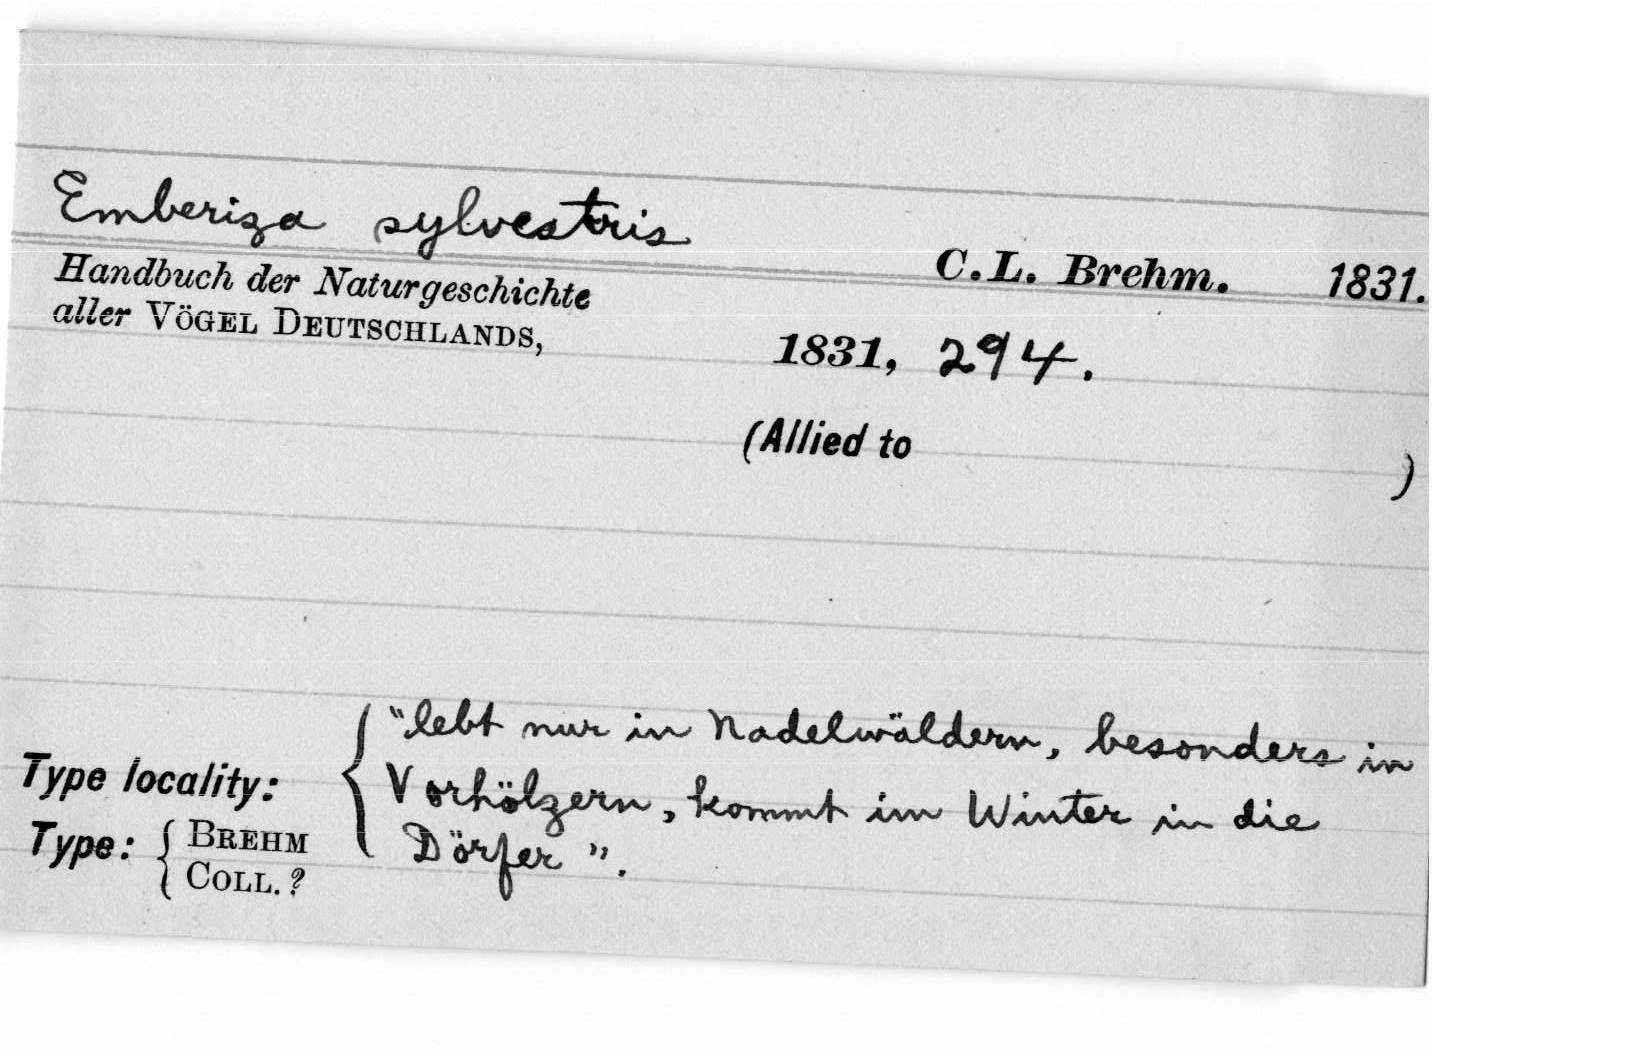 Emberiza sylvestris
C.L. Brehm. 1831.
Handbuch der Naturgeschichte
aller VÖGEL DEUTSCHLANDS,
1831, 294.
(Allied to )
Type locality: { "lebt nur in Nadelwäldern, besonders in
Vorhölzern, kommt im Winter in die
Dörfer".
Type: { BREHM
COLL. ?